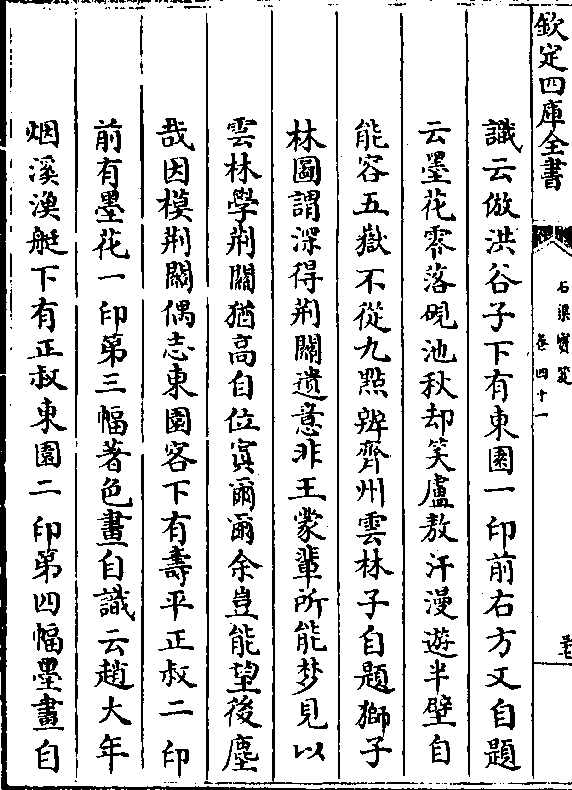 欽定四庫全書
石渠寶笈
卷四十一
識云倣洪谷子下有東園一印前右方又自題
云墨花零落硯池秋却笑盧敖汗漫遊半壁自
能容五嶽不從九點辨齊州雲林子自題獅子
林圖謂深得荆關遺意非王蒙輩所能梦見以
雲林學荆關猶高自位寘爾爾余豈能望後塵
哉因模荆關偶志東園客下有壽平正叔二印
前有墨花一印第三幅著色畫自識云趙大年
烟溪漁艇下有正叔東園二印第四幅墨畫自